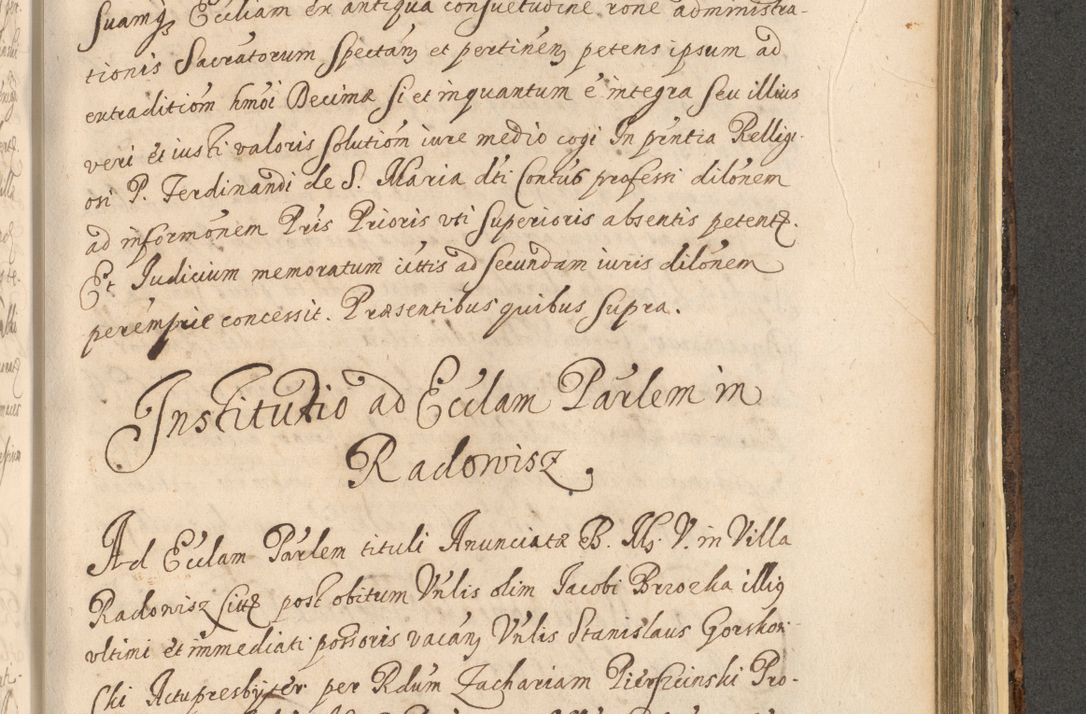 suamq Eccliam ex antiqua consuetudine rone administra-
tionis Sacratorum spectan et pertinen petens ipsum ad
extraditiom hmoi Decimæ si et inquantum e integra seu illius
veri et iusti valoris solutiom iure medio cogi In pntia Relligi-
osi P. Ferdinandi de S. Maria dti Contus professi dilonem
ad informonem Pris Prioris uti Superioris absentis petent.
Et Judicium memoratum cittis ad secundam iuris dilonem
peremprie concessit. Præsentibus quibus supra.
Institutio ad Ecclam Parlem in
Radowisz
Ad Ecclam Parlem tituli Anunciatæ B. M. V. in Villa
Radowisz sitt post obitum Vnlis olim Jacobi Brzocha illiq
ultimi et immediati possoris vacan Vnlis Stanislaus Gorskon-
Ski Actu presbyter per Rdum Zachariam Pierscinski Pro-